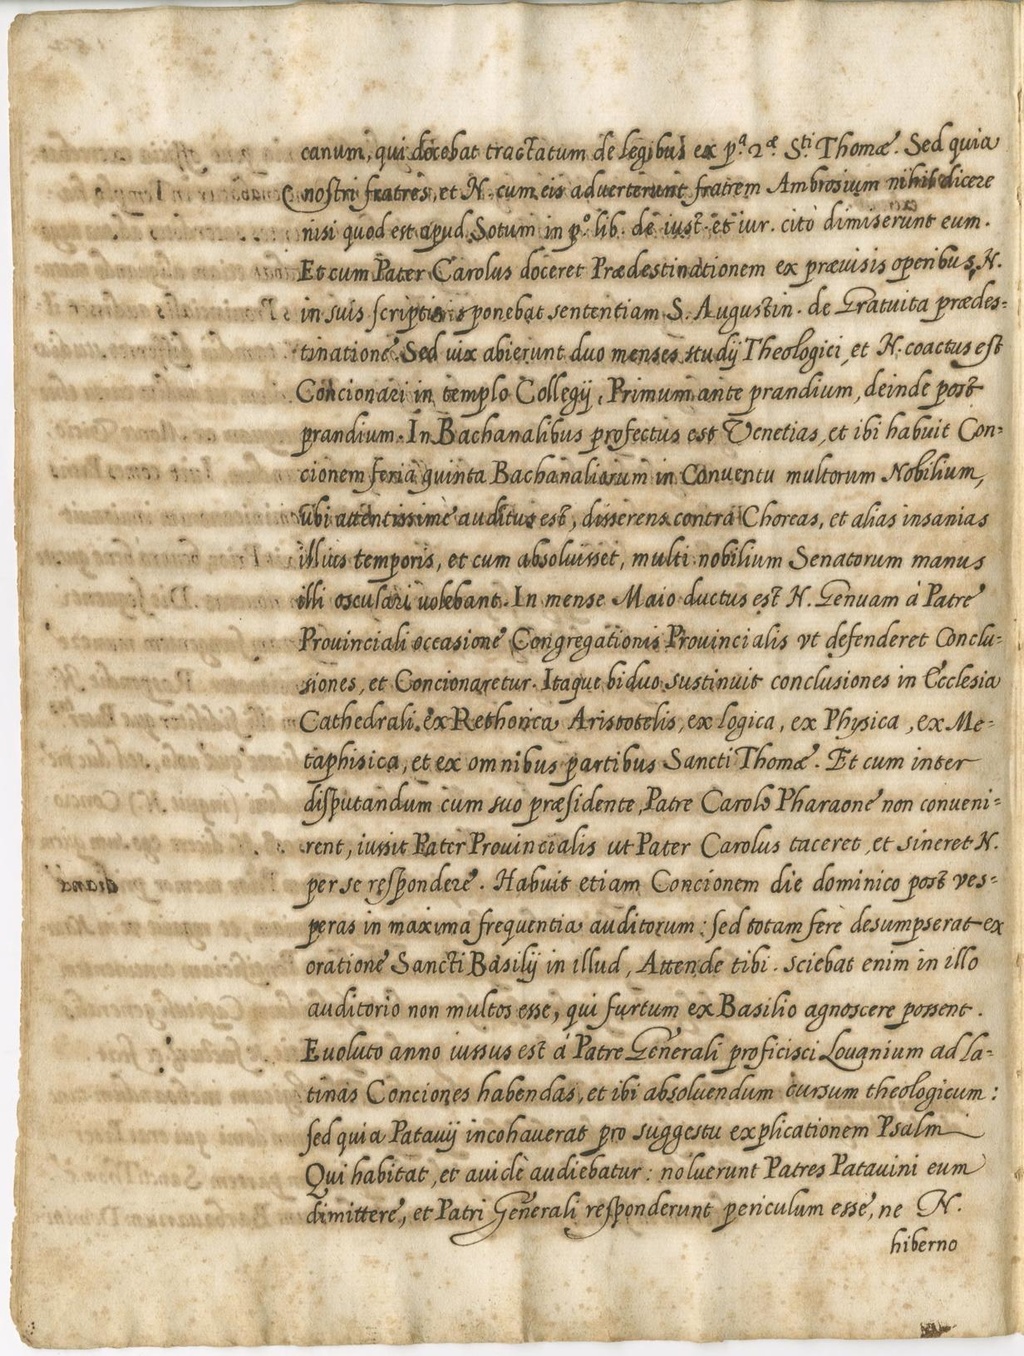 canum, qui docebat tractatum de legibus ex p.ª 2.æ S.ti Thomæ. Sed quia
nostri fratres, et N. cum eis aduerterunt fratrem Ambrosium nihil dicere
nisi quod est apud Sotum in p.º lib. de iust. et iur. citò dimiserunt eum.
Et cum Pater Carolus doceret Prædestinationem ex præuisis operibus, N.
in suis scriptis ponebat sententiam S. Augustin. de Gratuita prædes=
tinatione. Sed uix abierunt duo menses studij Theologici, et N. coactus est
Concionari in templo Collegij, Primum ante prandium, deinde post
prandium. In Bachanalibus profectus est Venetias, et ibi habuit Con=
cionem feria quinta Bachanaliorum in Conuentu multorum Nobilium,
ubi attentissimè auditus est, disserens contra Choreas, et alias insanias
illius temporis, et cum absoluisset, multi nobilium Senatorum manus
illi osculari uolebant. In mense Maio ductus est N. Genuam à Patre
Prouinciali occasione Congregationis Prouincialis vt defenderet Conclu=
siones, et Concionaretur. Itaque biduo sustinuit conclusiones in Ecclesia
Cathedrali, ex Rethorica Aristotelis, ex logica, ex Physica, ex Me=
taphisica, et ex omnibus partibus Sancti Thomæ. Et cum inter
disputandum cum suo præsidente, Patre Carolo Pharaone non conueni=
rent, iussit Pater Prouincialis ut Pater Carolus taceret, et sineret N.
per se respondere. Habuit etiam Concionem die dominico post ves=
peras in maxima frequentia auditorum: sed totam ferè desumpserat ex
oratione Sancti Basilij in illud, Attende tibi. sciebat enim in illo
auditorio non multos esse, qui furtum ex Basilio agnoscere possent.
Euoluto anno iussus est à Patre Generali proficisci Louanium ad la=
tinas Conciones habendas, et ibi absoluendum cursum theologicum:
sed quia Patauij incohauerat pro suggestu explicationem Psalm
Qui habitat, et auidè audiebatur: noluerunt Patres Patauini eum
dimittere, et Patri Generali responderunt periculum esse, ne N.
hiberno